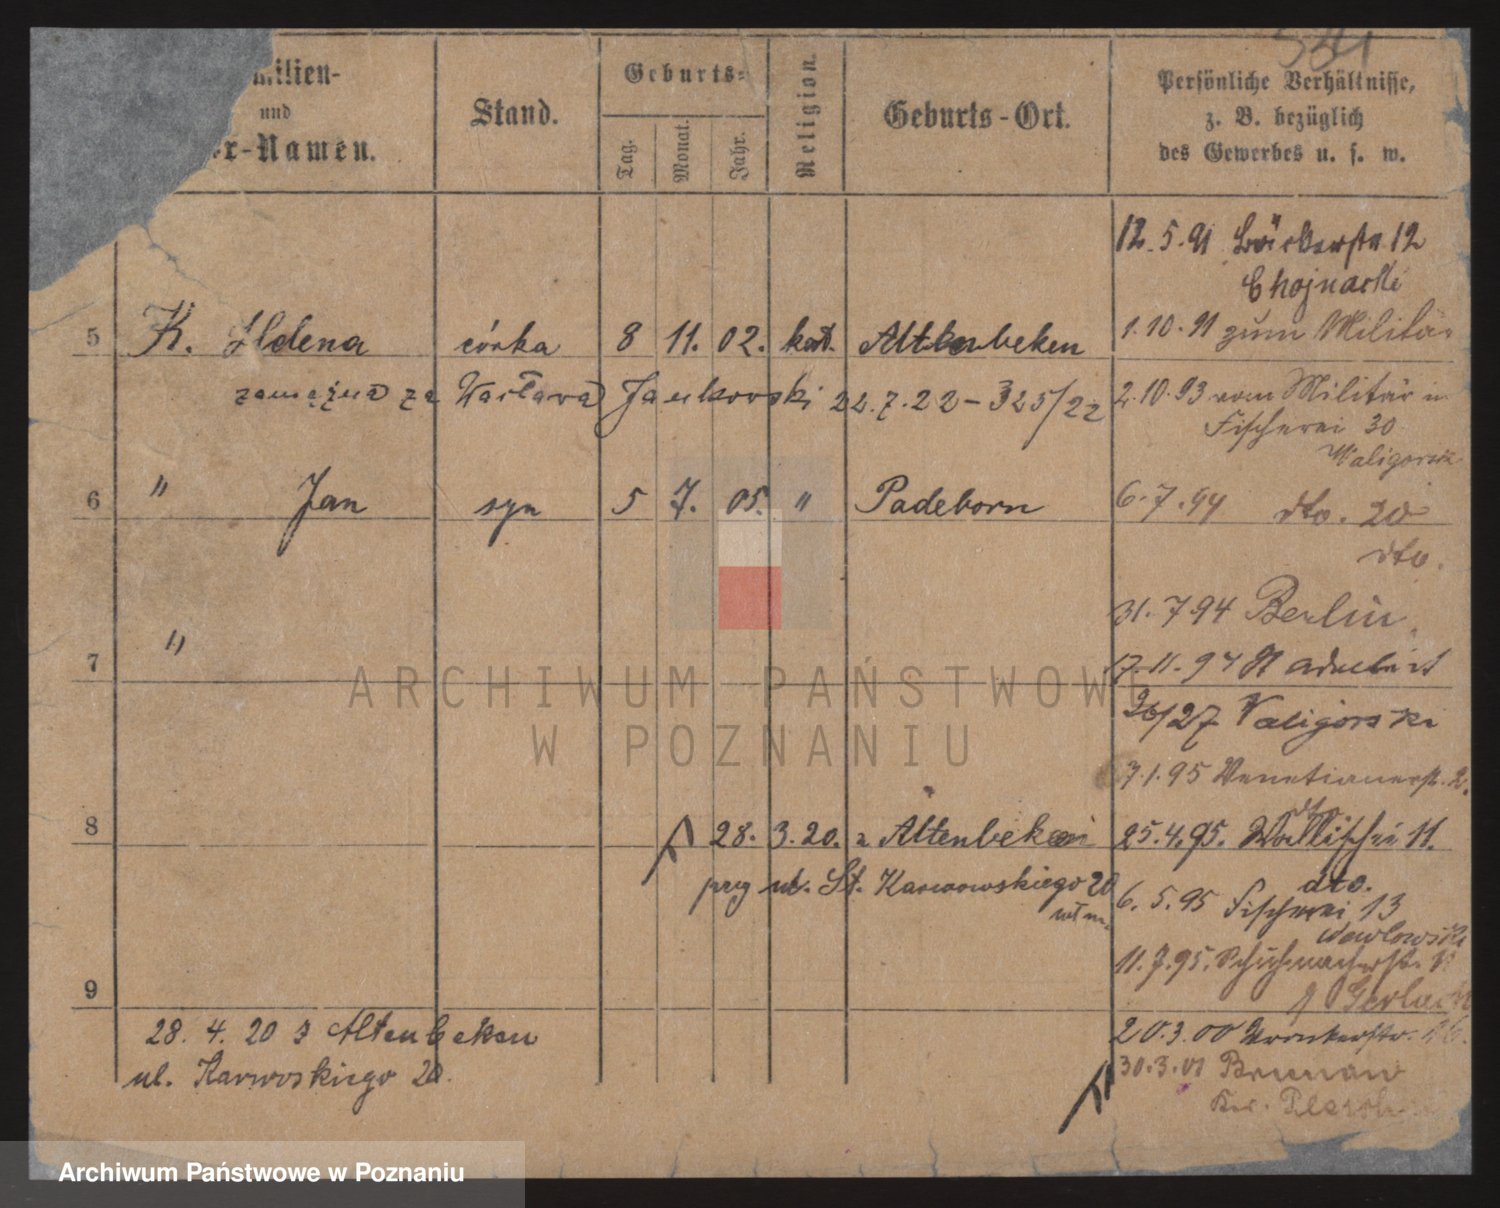 541
milien-
und
r-Namen.
Stand.
Geburts-
Tag.
Monat.
Jahr.
Religion.
Geburts-Ort.
Persönliche Verhältnisse,
z. B. bezüglich
des Gewerbes u. s. w.
12.5.91 Bäckerstr. 12
Chojnacki
1.10.91 zum Militär
5 K. Helena córka 8 11. 02. kat. Altenbeken
zamężna za Wacława Jankowski 22.7.22 - 325/22
2.10.93 vom Militär in
Fischerei 30
Waligorski
6 " Jan syn 5 7. 05. " Padeborn
6.7.94 dto. 20
dto.
31.7.94 Berlin
7 "
17.11.94
26/27 Valigorski
7.1.95 Venetianerstr. 2.
dto
8
28. 3. 20. z Altenbeken
przy ul. St. Karwowskiego 20
25.4.95. Wallischei 11.
dto.
6.5.95 Fischerei 13
Nawlowski
11.7.95. Schuhmacherstr. 11
Gerlach
9
28. 4. 20 z Altenbeken
ul. Karwoskiego 20.
20.3.00 Wronkerstr. 16.
30.3.01 Brunau
Kr. Plesch
ARCHIWUM PAŃSTWOWE
W POZNANIU
Archiwum Państwowe w Poznaniu